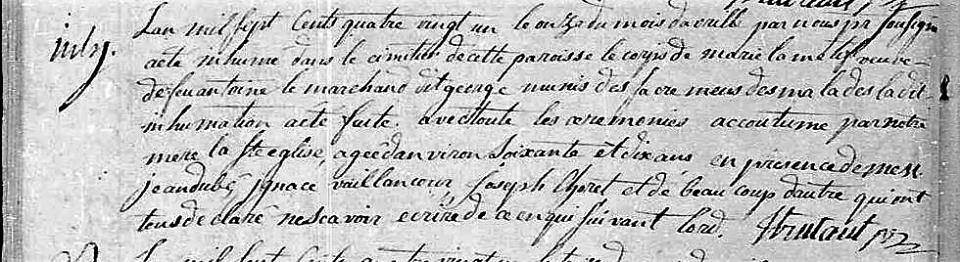 Lan mil sept Cents quatre vingt un le onze du mois davrill par nous ptr sousigné
inh
acté inhumé dans le cimitier de cette paroisse le corps de marie la veuve
de feu antoine le marchand dit george munis des sacremens des malades ladit
inhumation acté faite. avec toute les ceremonies accoutumé par notre
mere la Ste eglise, ageé danviron soixante et dix ans en presence de mesr
jean dubé ignace vaillancour, Joseph Choret et de beaucoup dautre qui ont
tous declaré ne scavoir ecrire de ce enqui suivant lord.